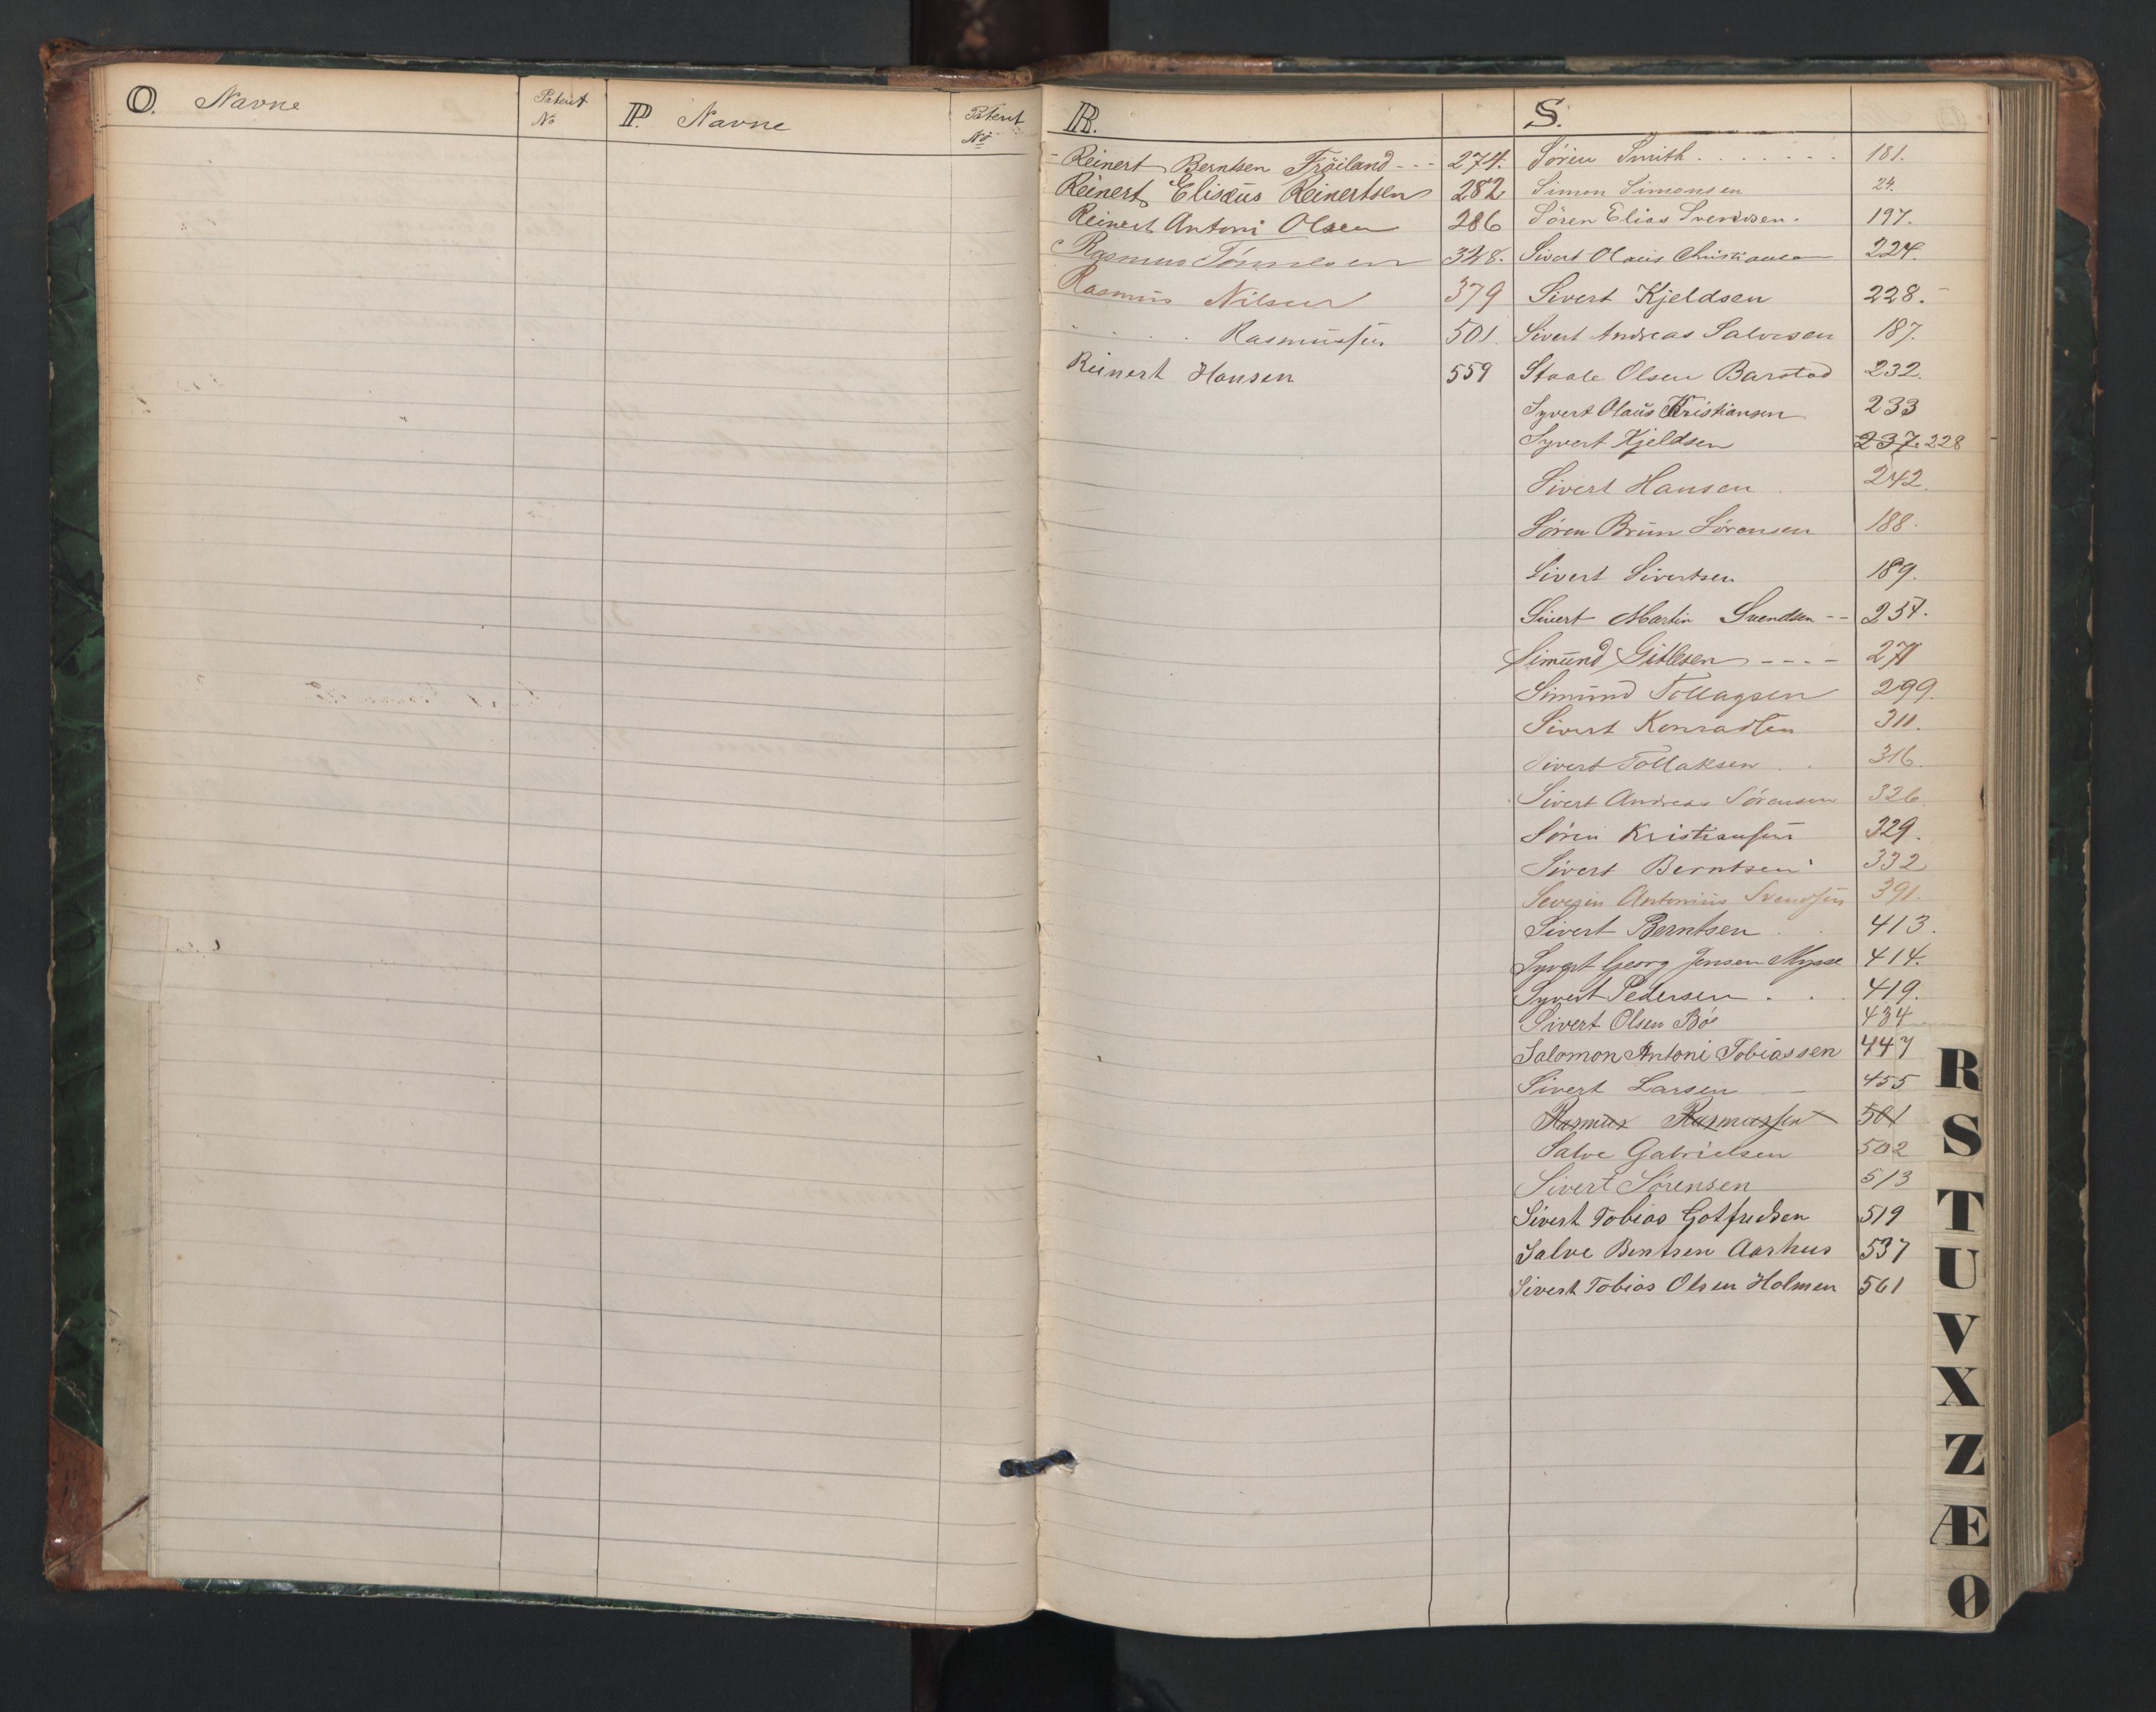 O. Navne Patent No P. Navne Patent No
R.
Reinert Berntsen Fröiland --- 274.
Reinert Elisæus Reinertsen 282
Reinert Antoni Olsen 286
Rasmus Tönnesen 348.
Rasmus Nilsen 379
" Rasmussen 501.
Reinert Hansen 559
S.
Søren Smith . . . . . . . 181.
Simon Simonsen 24.
Søren Elias Svendsen. 197.
Sivert Olaus Christiansen 224.
Sivert Kjeldsen 228.
Sivert Andreas Salvesen 187.
Staale Olsen Barstad 232.
Syvert Olaus Kristiansen 233
Syvert Kjeldsen 237. 228
Sivert Hansen 242.
Søren Brun Sørensen 188.
Sivert Sivertsen 189.
Sivert Martin Svendsen -- 254.
Simund Gitlesen ---- 271
Simund Tollagsen 299.
Sivert Konradsen 311.
Sivert Tollaksen . . 316.
Sivert Andreas Sørensen 326.
Søren Kristiansen 329.
Sivert Berntsen 332
Severin Antonius Svendsen 391.
Sivert Berntsen . . 413.
Syvert Georg Jensen Mysse 414.
Syvert Pedersen . . . 419.
Sivert Olsen Bö 434
Salomon Antoni Tobiassen 447
Sivert Larsen 455
Rasmus Rasmussen 501
Salve Gabrielsen 502
Sivert Sörensen 513
Sivert Tobias Gotfredsen 519
Salve Bentsen Aarhus 537
Sivert Tobias Olsen Holmen 561
R
S
T
U
V
X
Z
Æ
Ø